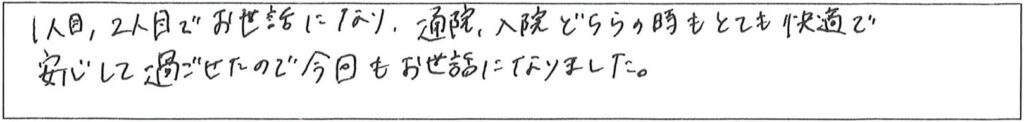 1人目,2人目でお世話になり、通院、入院どちらの時もとても快適で
安心して過ごせたので今回もお世話になりました。